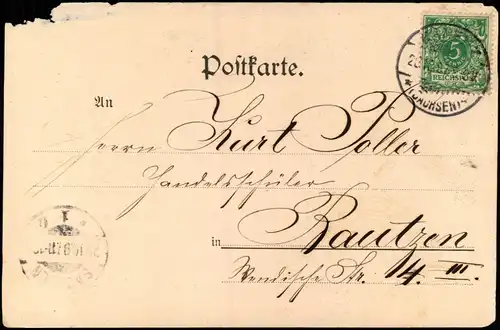 Postkarte.
5
REICHSPOST
(SACHSEN)
An
Herrn Kurt Poller
Handelsschüler
in Bautzen
Wendische Str. 14. III.